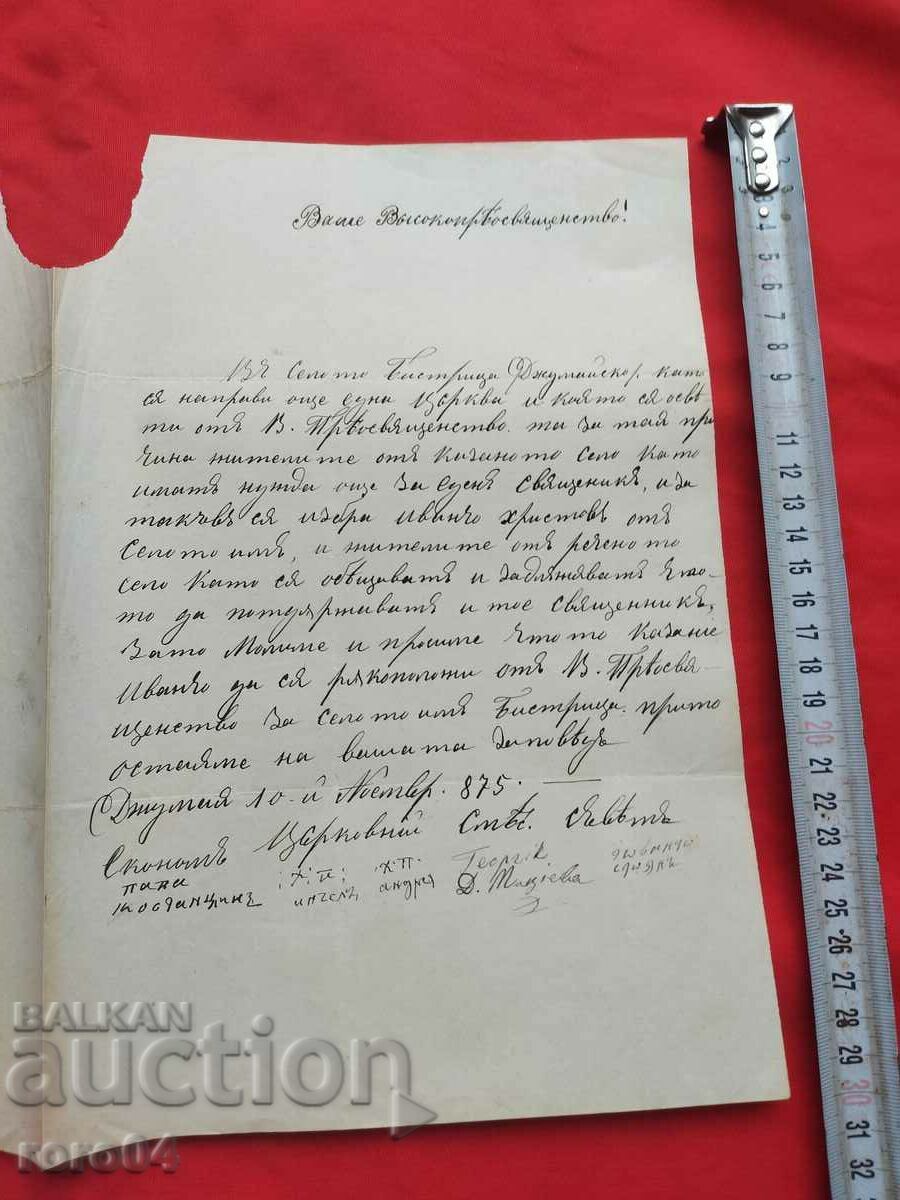 Ваше Высокопрѣосвященство!
Въ Селото Бистрица (Джумайско), като
ся направи още една Църква и която ся освѣ
ти отъ В. Прѣосвященство. та за тая при
чина жителите отъ казаното село като
иматъ нужда още за еденъ священикъ, и за
такъвъ ся избра Иванчо Христовъ отъ
Селото имъ, и жителите отъ реченото
село като ся обѣщаватъ и задлъжняватъ
то да потдяржаватъ и тое священникъ,
Зато Молиме и просиме Чтото казание
Иванчо да ся рякоположи отъ В. Прѣосвя-
щенство за селото имъ Бистрица. прито
остаяме на вашата заповѣдь
Джумая 10-й Ноемвр. 875. —
Церковний Смѣс. Съвѣтъ
Економъ
папа
Костанцинъ
х: п:
ингелъ
х.п.
андрея
Георгік
Д.
стоянъ
1 2 3 4 5 6 7 8 9 10 11 12 13 14 15 16 17 18 19 20 21 22 23 24 25 26 27 28 29 30 31 32
BALKAN
auction
roro04